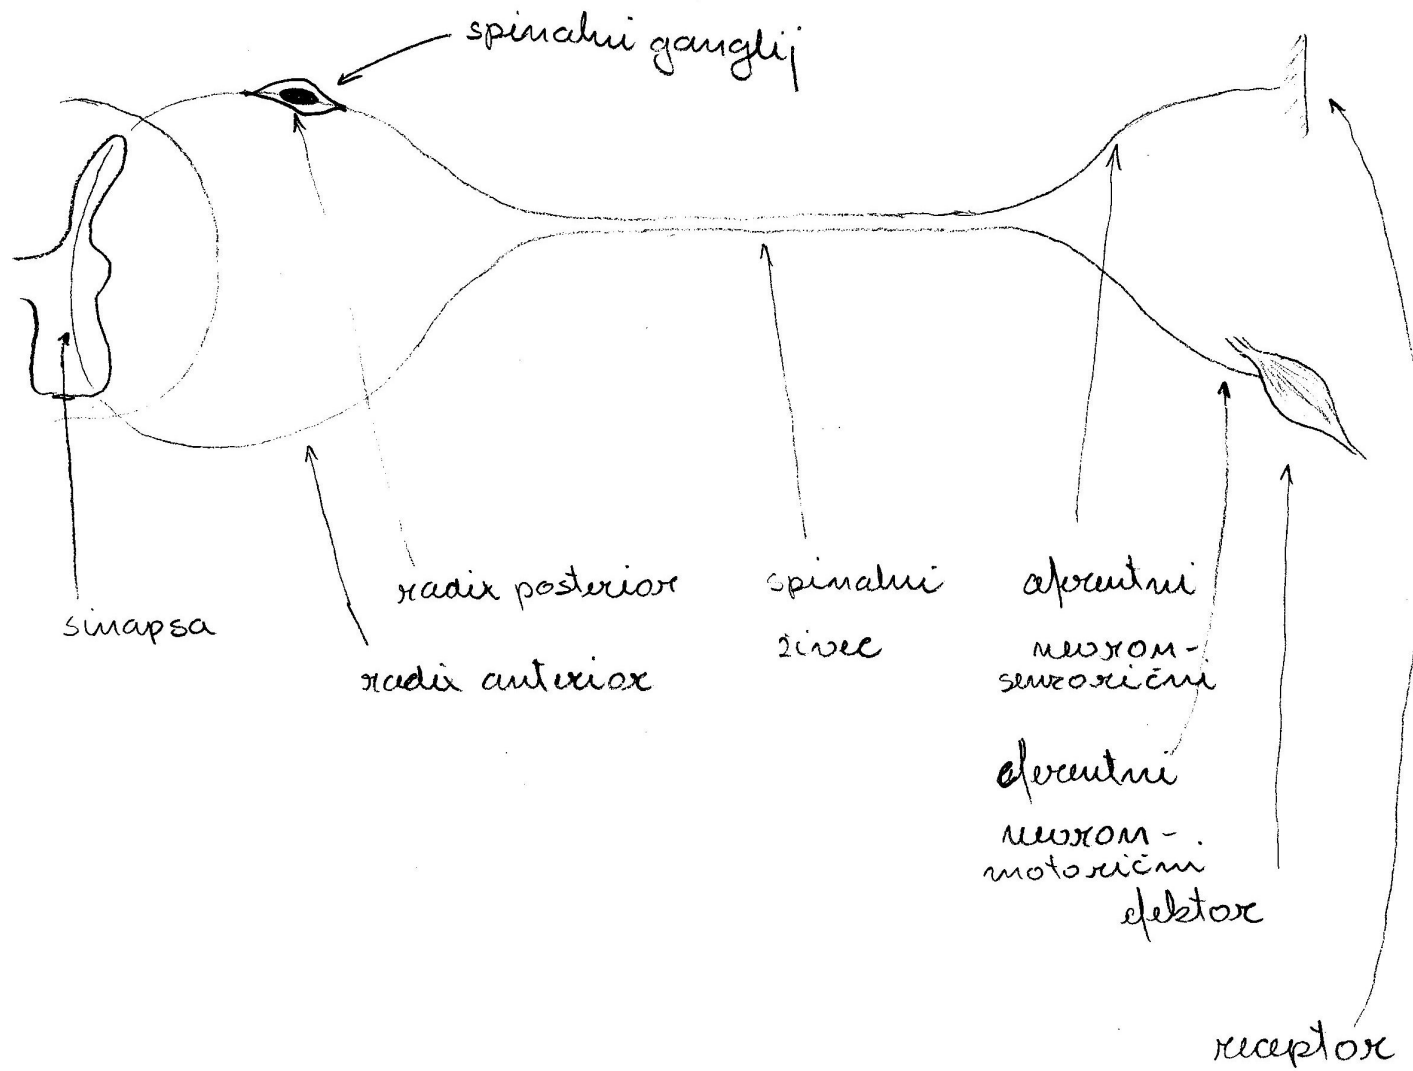 spinalni ganglij
sinapsa
radix posterior
radix anterior
spinalni
živec
aferentni
nevron-
senzorični
eferentni
nevron-
motorični
efektor
receptor